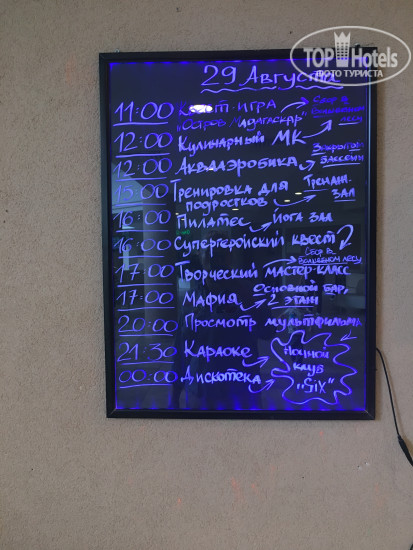 TOP Hotels
ФОТО ТУРИСТА
29 Августа
11:00 Квест-игра „Остров Мадагаскар" Сбор в Волшебном лесу
12:00 Кулинарный МК
12:00 Аквааэробика Закрытом бассейн
15:00 Тренировка для подростков Тренаж. зал
16:00 Пилатес Йога зал
16:00 Супергеройский квест Сбор в Волшебном лесу
17:00 Творческий мастер-класс
17:00 Мафия Основной бар, 2 этаж
20:00 Просмотр мультфильма
21:30 Караоке
00:00 Дискотека
Ночной клуб „Six"